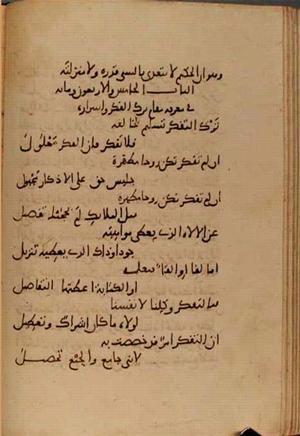 وهو ان الحكيم لا يتعدى بالشي قدره ولا منزلته
الباب الخامس والاربعون ومائة
في معرفة مقام ترك الفكر واسراره
ترك التفكر تسليم لخالقه
فلا تفكر فان الفكر معلول
ان لم تفكر تكن روحا مطهرة
جليس حق على الاذكار مجبول
ان لم تفكر تكن روحا مطهره
مثل الملائك لم تحجبه تفصيل
عن الالاء الذي يعطي مواهبه
جودا وذاك الذي يعطيه تنزيل
اما لقا او القا فيعلمه
او الكتابة اعطتها التفاصيل
من التفكر وكلنا لانفسنا
اولاه ما كان اشراك وتعطيل
ان التفكر امر قد خصصت به
لانني جامع والجمع تحصيل